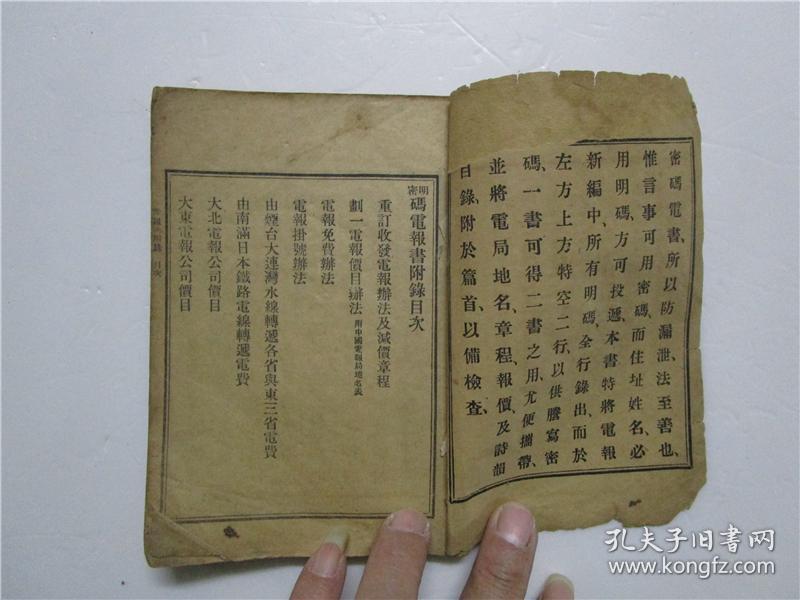 密碼電書、所以防漏泄、法至善也、
惟言事可用密碼、而住址姓名、必
用明碼、方可投遞、本書特將電報
新編中、所有明碼、全行錄出、而於
左方上方、特空二行、以供謄寫密
碼、一書可得二書之用、尤便攜帶、
並將電局地名、章程、報價、及詩韻
目錄、附於篇首、以備檢查、
明密碼電報書附錄目次
重訂收發電報辦法及減價章程
劃一電報價目辦法附中國電報局地名表
電報免費辦法
電報掛號辦法
由煙台大連灣水線轉遞各省與東三省電費
由南滿日本鐵路電線轉遞電費
大北電報公司價目
大東電報公司價目
目次
孔夫子旧书网
www.kongfz.com